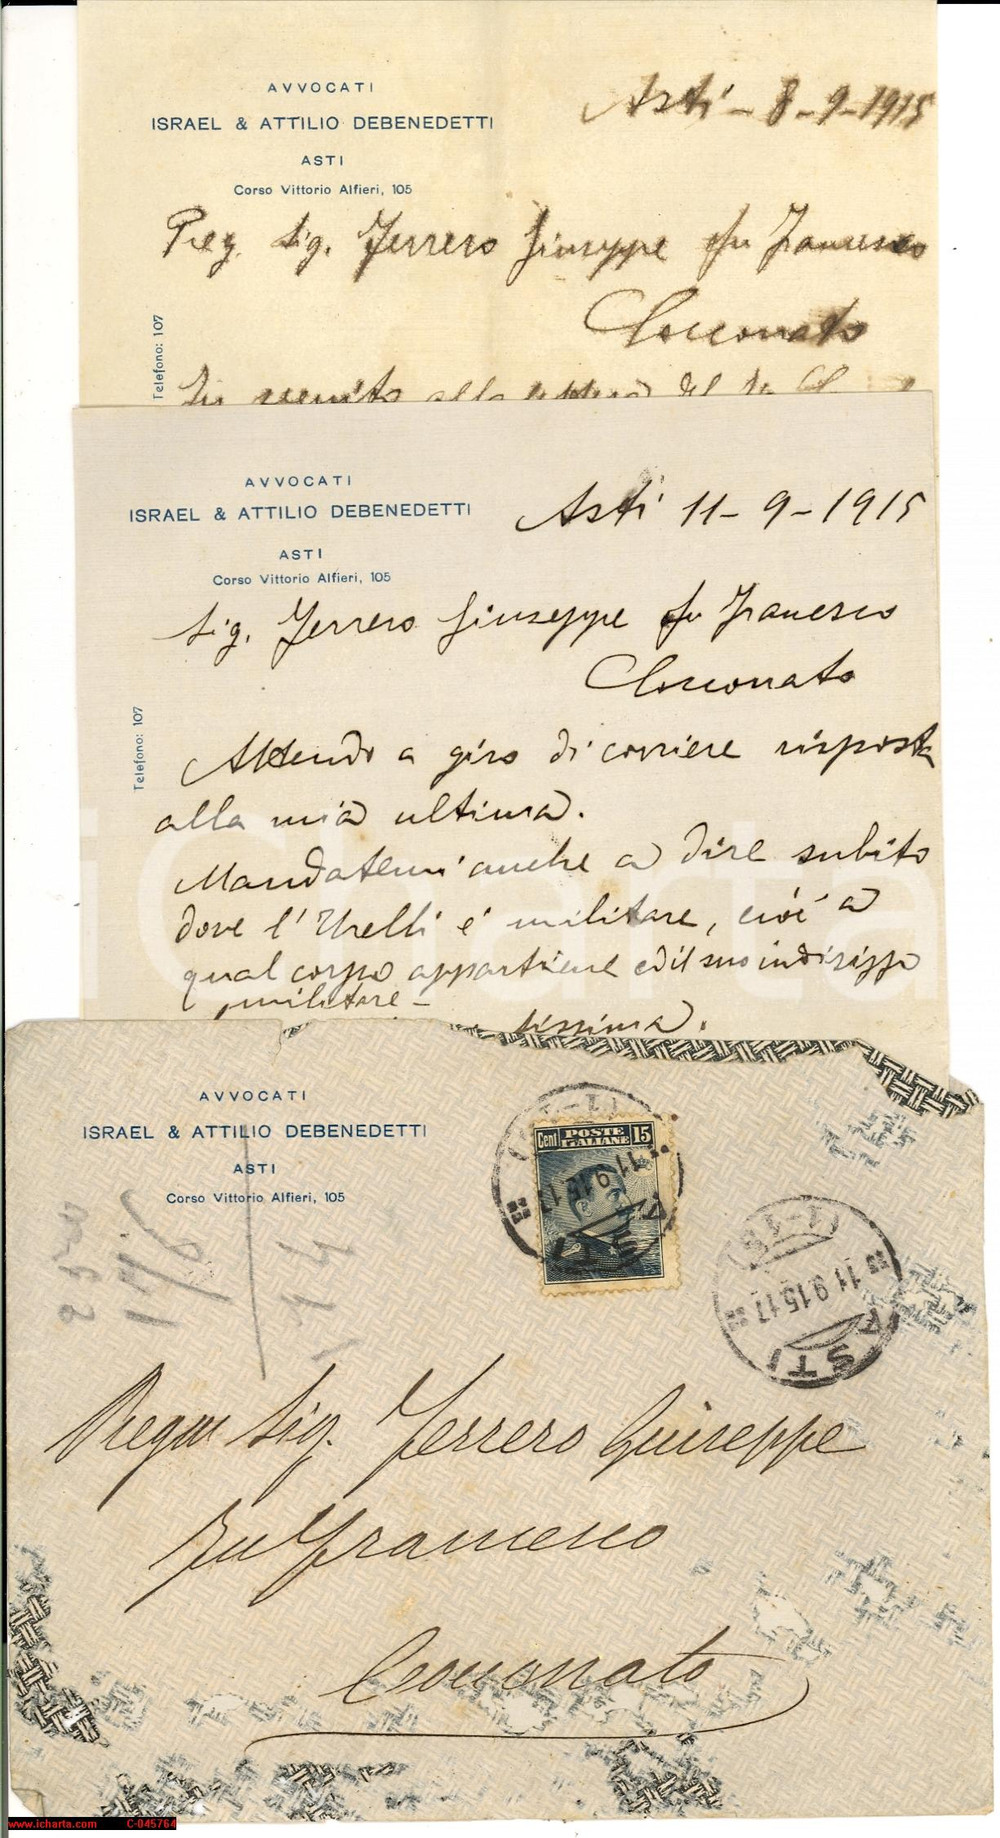 AVVOCATI
ISRAEL & ATTILIO DEBENEDETTI
ASTI
Corso Vittorio Alfieri, 105
Telefono: 107
Asti - 8-9-1915
Preg. Sig. Ferrero Giuseppe fu Francesco
Cocconato
In seguito alla lettera del
AVVOCATI
ISRAEL & ATTILIO DEBENEDETTI
ASTI
Corso Vittorio Alfieri, 105
Telefono: 107
Asti 11-9-1915
Sig. Ferrero Giuseppe fu Francesco
Cocconato
Attendo a giro di corriere risposta
alla mia ultima.
Mandatemi anche a dire subito
dove l'Urelli è militare, cioè a
qual corpo appartiene ed il suo indirizzo
militare -
AVVOCATI
ISRAEL & ATTILIO DEBENEDETTI
ASTI
Corso Vittorio Alfieri, 105
Cent POSTE ITALIANE 15
ASTI
11 9 15 17
(11-18)
ASTI
Sig. Ferrero Giuseppe
fu Francesco
Cocconato
iCharta
www.icharta.com C-045764